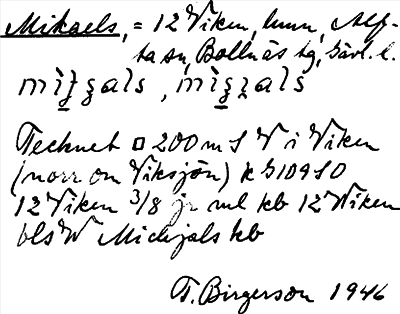 Mikaels, = 12 Viken, hmn, Alf-
ta sn, Bollnäs tg, Gävl. l.
Tecknet □ 200 m S V i Viken
(norr om Viksjön) k G 109 SO
12 Viken 3/8 jr ml kb 12 Viken
bls W Michjols kb
T. Birgerson 1946